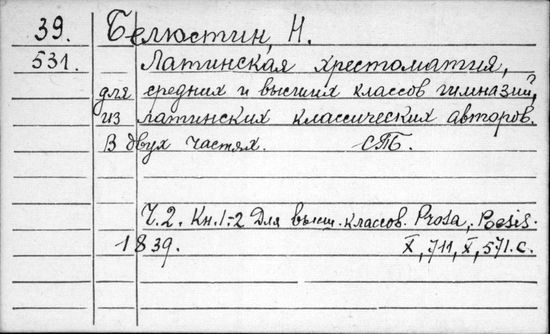 39. Белюстин, Н.
531. Латинская хрестоматия,
для средних и высших классов гимназий,
из латинских классических авторов.
В двух частях. СПБ.
Ч. 2. Кн. 1-2 Для высш. классов. Prosa, Poesis.
1839. X, 711, X, 571. с.